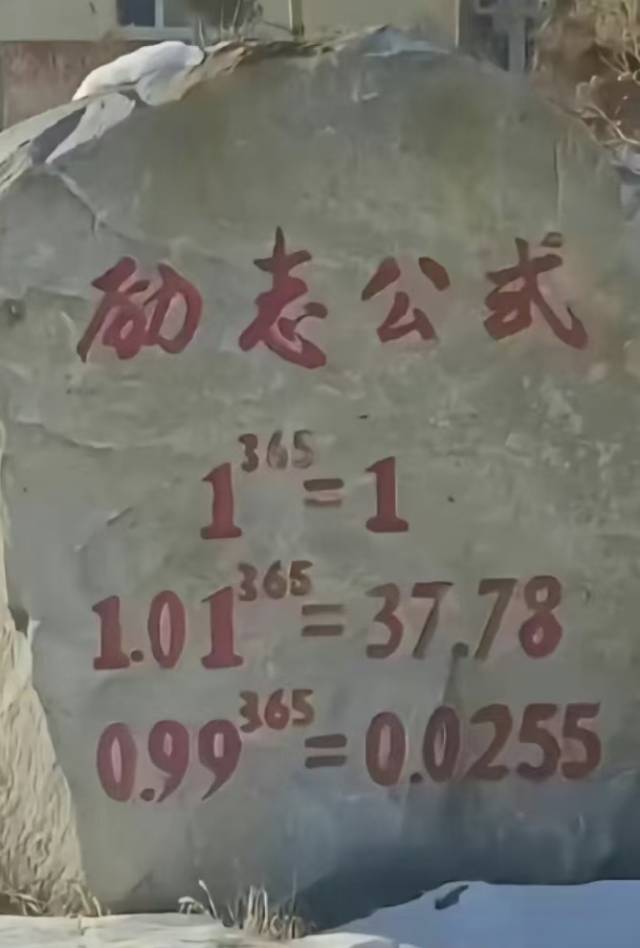 励志公式
1³⁶⁵=1
1.01³⁶⁵=37.78
0.99³⁶⁵=0.0255